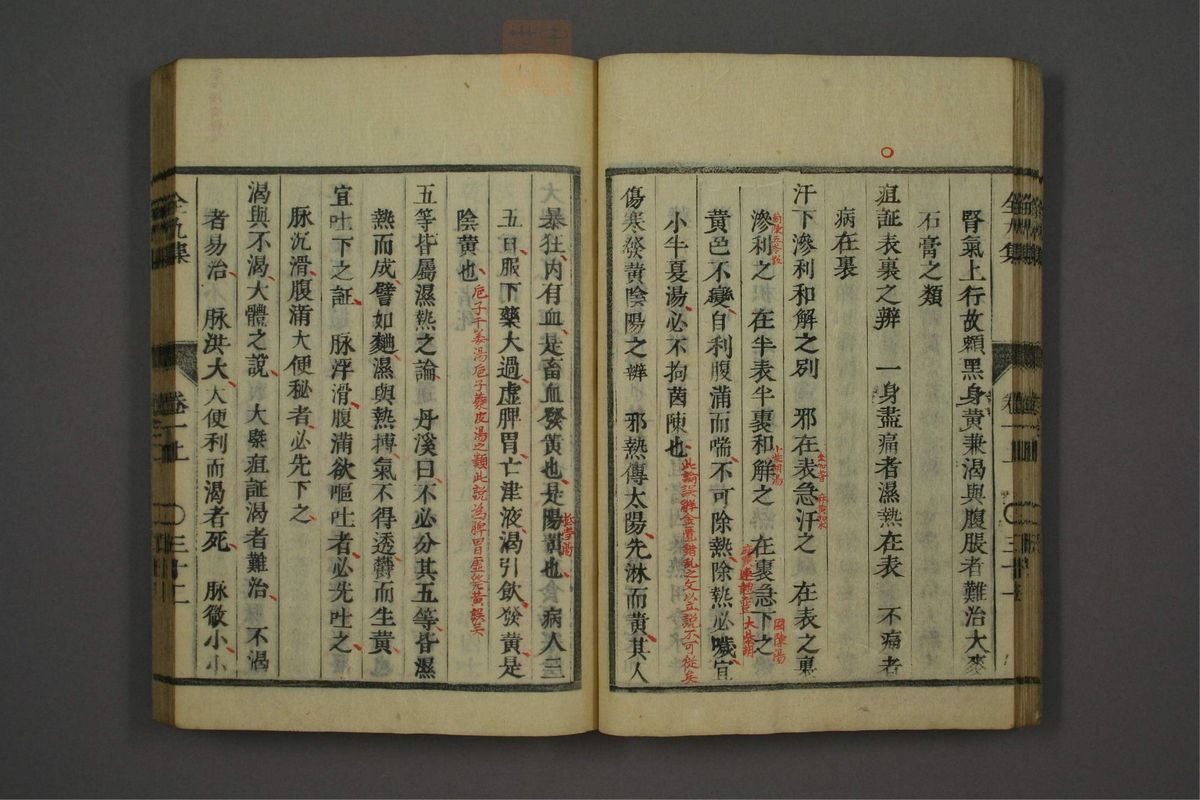 腎氣上行故額黑身黄兼渴與腹脹者難治大麥
石膏之類
疸証表裏之辨 一身盡痛者濕熱在表 不痛者
病在裏
汗下滲利和解之別 邪在表急汗之 在表之裏
滲利之 在半表半裏和解之 在裏急下之
黄色不變自利腹滿而喘不可除熱除熱必噦宜
小半夏湯必不拘茵陳也
此論誤解金匱錯乱之文以立説不可從矣
傷寒發黄陰陽之辨 邪熱傳太陽先淋而黄其人
大暴狂内有血是畜血發黄也是陽黄也 病人三
五日服下藥大過虚脾胃亡津液渴引飲發黄是
陰黄也
五等皆屬濕熱之論 丹溪曰不必分其五等皆濕
熱而成譬如麯濕與熱搏氣不得透欝而生黄
宜吐下之証 脉浮滑腹滿欲嘔吐者必先吐之
脉沉滑腹滿大便秘者必先下之
渴與不渴大體之說 大槩疸証渴者難治 不渴
者易治 脉洪大大便利而渴者死 脉微小小
全九集
卷一上
三十二